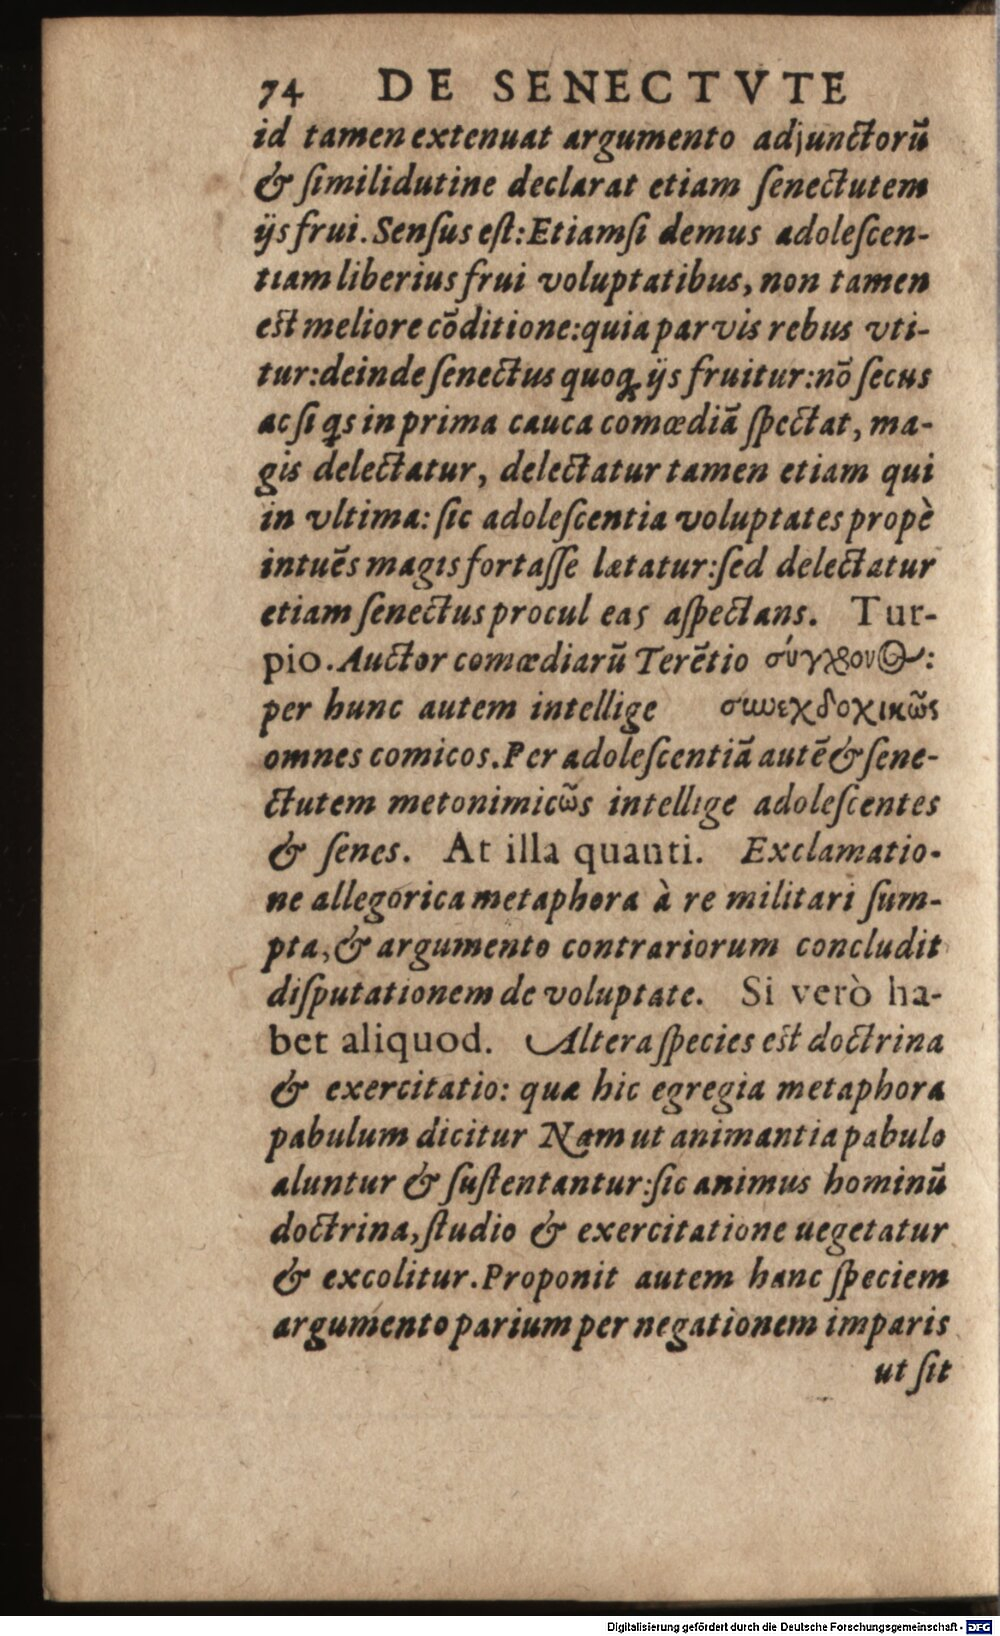 74 DE SENECTVTE
id tamen extenuat argumento adjunctorũ
& ſimilidutine declarat etiam ſenectutem
ijs frui. Senſus eſt: Etiamſi demus adoleſcen-
tiam liberius frui voluptatibus, non tamen
est meliore cõditione: quia parvis rebus vti-
tur: deinde ſenectus quoq; ijs fruitur: nõ ſecus
ac ſi qs in prima cauca comœdiã ſpectat, ma-
gis delectatur, delectatur tamen etiam qui
in vltima: ſic adoleſcentia voluptates propè
intuẽs magis fortaſſe lætatur: ſed delectatur
etiam ſenectus procul eas aſpectans. Tur-
pio. Auctor comœdiarũ Terẽtio σύγχρονος:
per hunc autem intellige συνεκδοχικῶς
omnes comicos. Per adoleſcentiã autẽ & ſene-
ctutem metonimicῶs intellige adoleſcentes
& ſenes. At illa quanti. Exclamatio-
ne allegorica metaphora à re militari ſum-
pta, & argumento contrariorum concludit
diſputationem de voluptate. Si verò ha-
bet aliquod. Altera ſpecies est doctrina
& exercitatio: quæ hic egregia metaphora
pabulum dicitur Nam ut animantia pabulo
aluntur & ſuſtentantur: ſic animus hominũ
doctrina, ſtudio & exercitatione uegetatur
& excolitur. Proponit autem hanc ſpeciem
argumento parium per negationem imparis
ut ſit
Digitalisierung gefördert durch die Deutsche Forschungsgemeinschaft - DFG